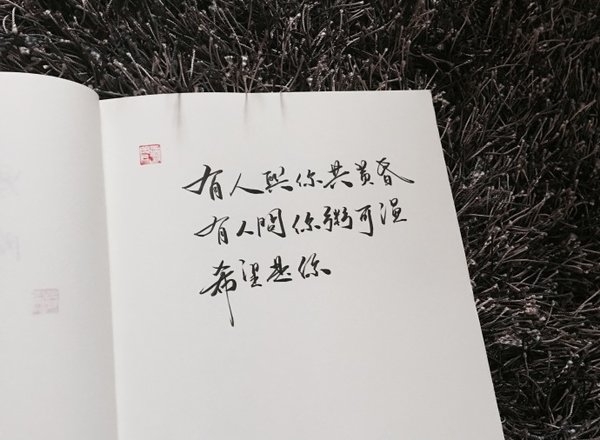 有人與你共黃昏
有人問你粥可溫
希望是你